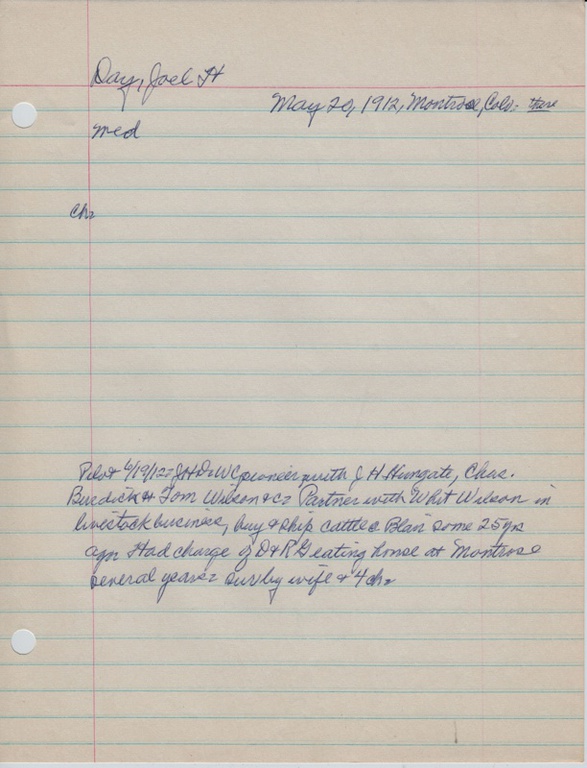 Day, Joel H
May 20, 1912, Montrose, Colo. there
med
ch=
Pilot 6/19/12= JHD WC pioneer with J H Hungate, Chas.
Burdick & Tom Wilson &c= Partner with Whit Wilson in
livestock business, buy & ship cattle @ Blair some 25 yrs
ago. Had charge of D&RG eating house at Montrose
several years= surv by wife & 4 ch=